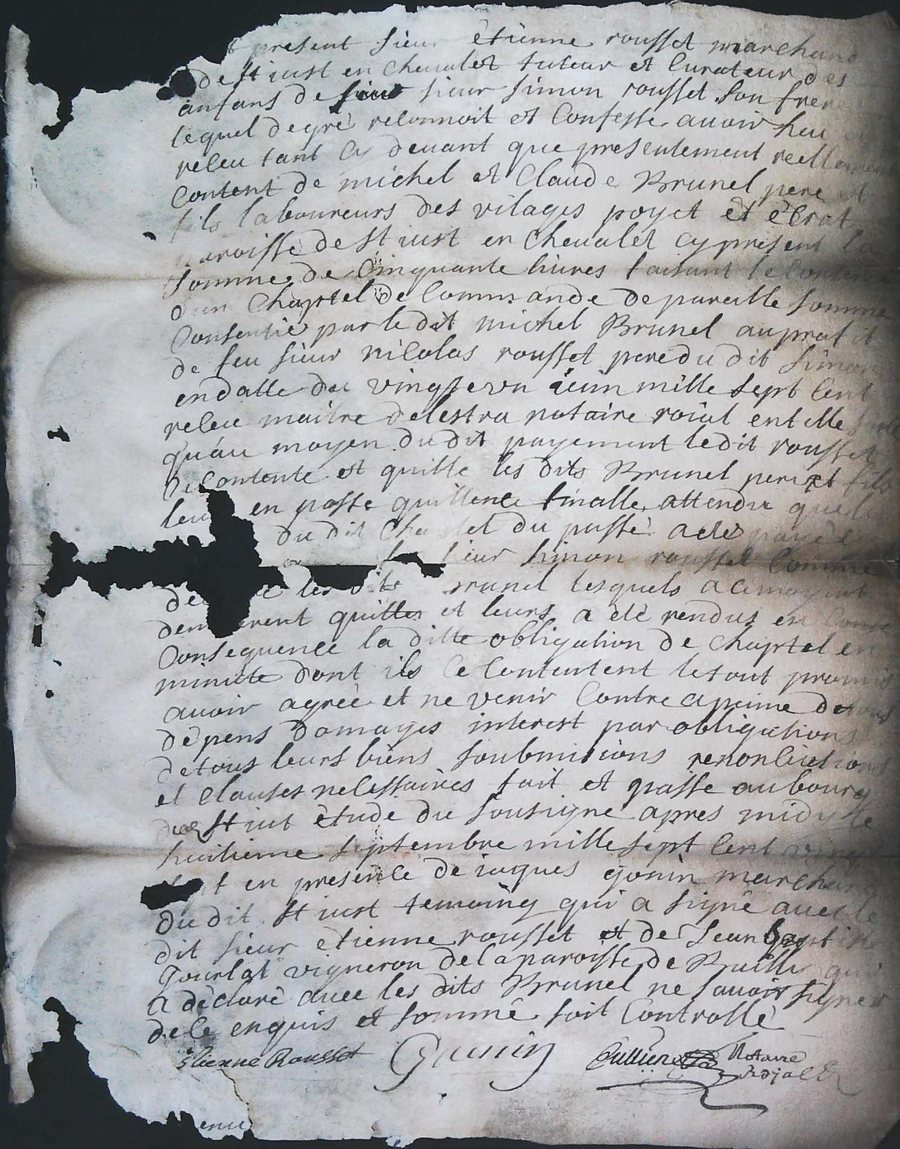 present sieur ètienne rousset marchand
de St iust en chevalet tuteur et Curateur des
anfans de feu sieur simon rousset son frere
lequel de grè reconnoit et Confesse auoir heu
receu tant Cy deuant que presentement reellement
Content de michel et Claude Brunel pere et
fils laboureurs des vilages poyet et
paroisse de St iust en chevalet cy prèsent la
somme de Cinquante liures faisant le
d'un Chaptel de Commande de pareille somme
Consentie par le dit michel Brunel au profit
de feu sieur nicolas rousset pere du dit simon
en datte du vingt iuin mille sept Cent
receu maitre delestra notaire roial
qu'au moyen du dit payement le dit rousset
Contente et quitte les dits Brunel pere et fils
leur en passe quittence finalle, attendu que
du dit du passè acte payè
sieur simon rousset Comme
les dits Brunel lesquels a Cemoyent
quittes et leurs a ètè rendus en
Consequence la ditte obligation de chaptel en
minute dont ils Ce Contentent le tout promis
auoir agreè et ne venir Contre a peine de tous
dèpens domages interest par obligations
de tous leurs biens soubmitions renonCiations
et Clauses neCessaires fait et passè au bourg
St iust ètude du soussignè apres midy le
huitieme septembre mille sept Cent vingt
en presence de iaques gonin marchand
du dit St iust temoing qui a signè auec le
dit sieur etienne rousset et de Jean baptiste
vigneron de la paroisse de qui
a dèclarè auec les dits Brunel ne sauoir signer
de Ce enquis et sommè soit Controllè
Etienne Rousset Gonin Cullier Notaire
Royal